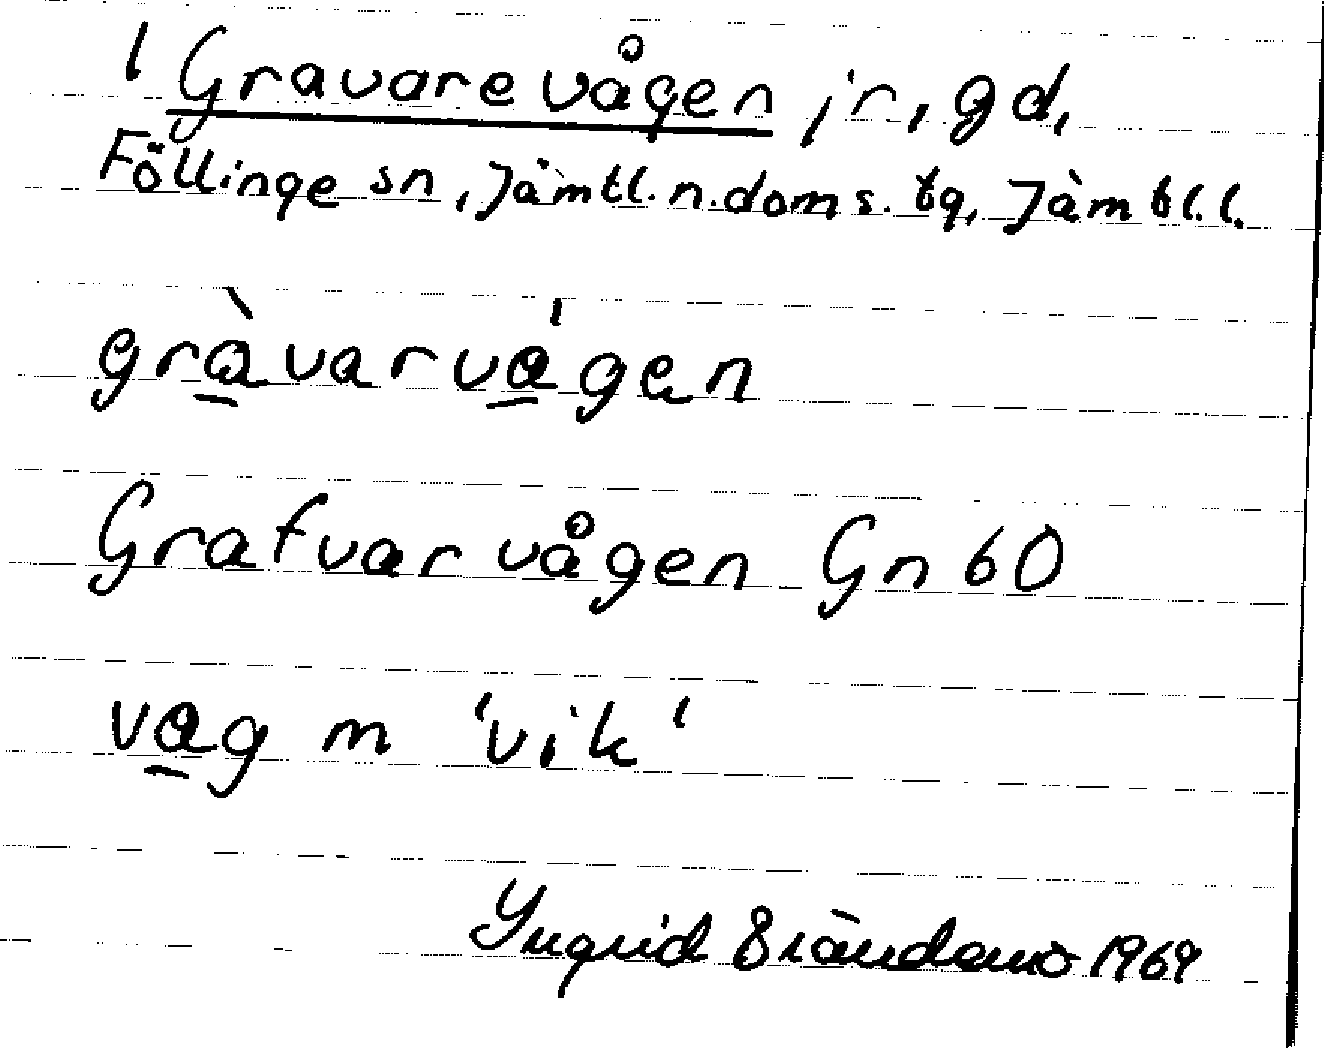 1 Gravarevågen jr, gd,
Föllinge sn, Jämtl. n. doms. tg, Jämtl. l.
gràvarvágen
Grafvarvågen Gn 60
vag m 'vik'
Ingrid 1969